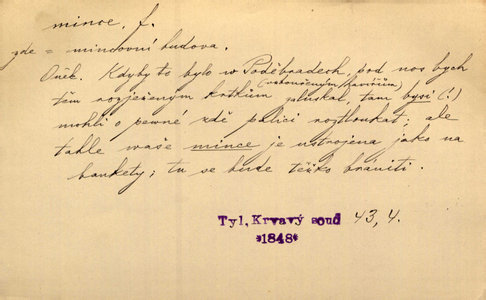 mince, f.
zde = mincovní budova.
Oněk. Kdyby to bylo w Poděbradech, pod nos bych
(vzbouřeným havířům)
těm rozježeným krtkům pluskal, tam bysi (!)
mohli o pewné zdě palici roztloukat; ale
tahle waše mince je ustrojena jako na
bankety; tu se bude těžko brániti.
Tyl, Krvavý soud 43, 4.
*1848*